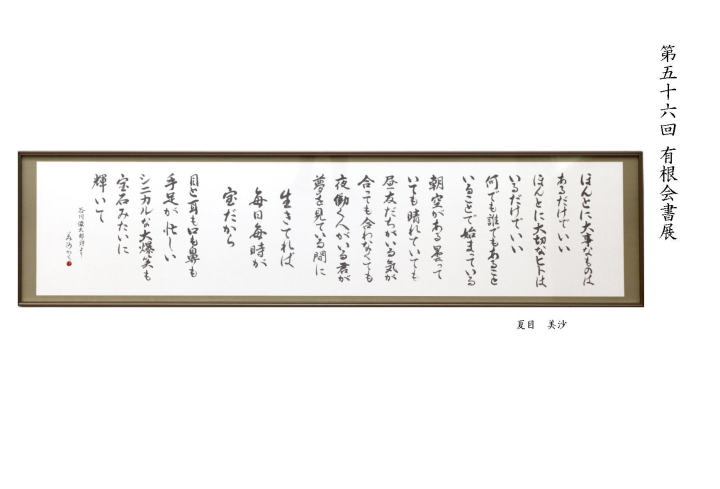 第五十六回 有根会書展
ほんとに大事なものは
あるだけでいい
ほんとに大切なヒトは
いるだけでいい
何でも誰でもあること
いることで始まっている
朝空がある曇って
いても晴れていても
昼友だちがいる気が
合っても合わなくても
夜働く人がいる君が
夢を見ている間に
生きてれば
毎日毎時が
宝だから
目と耳も口も鼻も
手足が忙しい
シニカルな大爆笑も
宝石みたいに
輝いて
谷川俊太郎詩より
美沙かく
夏目 美沙